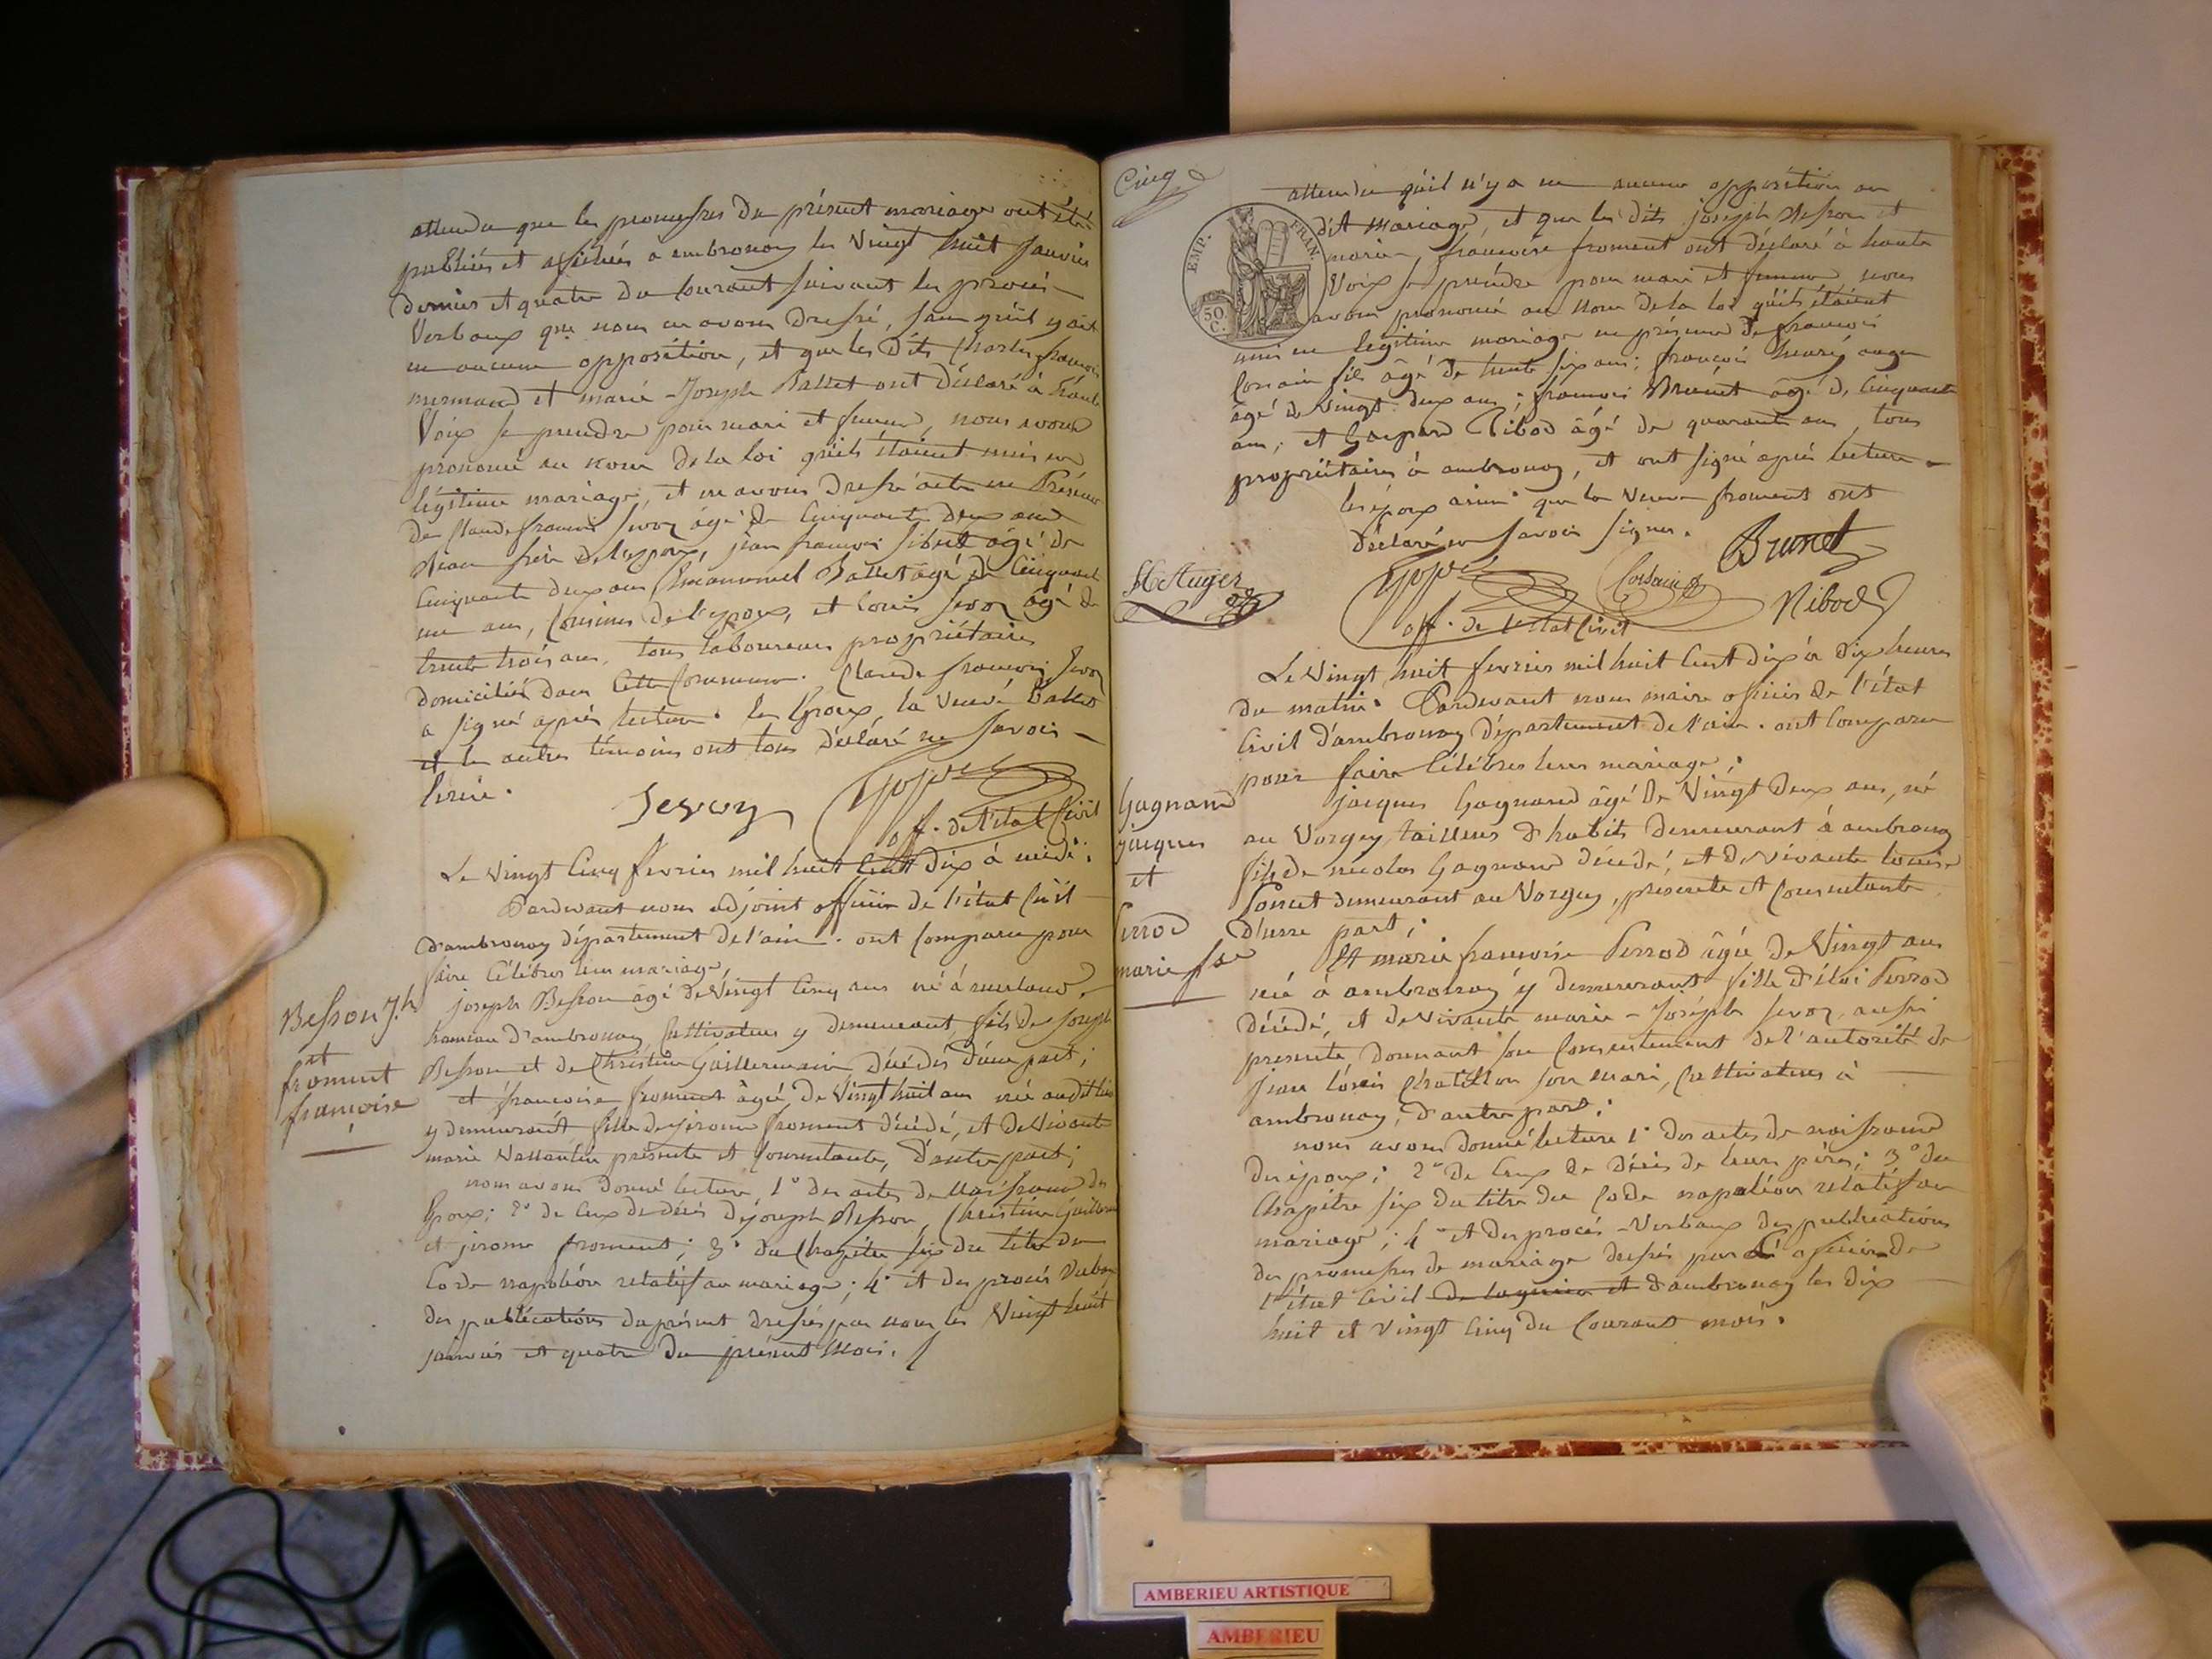 attendu que les promesses du présent mariage ont été
publiées et afichées a ambronay les Vingt huit Janvier
dernier et quatre du Courant suivant les procés-
Verbaux que nous en avons Dressé, sans qu'il y ait
eu aucune opposition, et que les dits Charles françois
mermand et marie-Joseph Ballet ont déclaré à haute
Voix se prendre pour mari et femme, nous avons
prononcé au nom de la loi qu'ils étaient unis en
légitime mariage, et en avons Dressé acte en Présence
de Claude françois Jevoz âgé de Cinquante Deux ans
Beau frère de l'epoux, jean françois âgé de
Cinquante deux ans Emanuel Ballet âgé de Cinquante
un ans, Cousins de l'epoux, et Louis Jevoz âgé de
trente trois ans, tous laboureurs propriétaires
domiciliés dans Cette Commune. Claude françois Jevoz
a signé après lecture. les Epoux, la Veuve Ballet
et les autres témoins ont tous déclaré ne savoir
Ecrire.
Jevoz
off. de l'état Civil
Le Vingt Cinq fevrier mil huit Cent dix à midi.
Pardevant nous adjoint officier de l'état Civil
d'ambronay département de l'ain. ont Comparu pour
faire Célébrer leur mariage,
Besson J.h
et
froment
françoise
joseph Besson âgé de Vingt Cinq ans né à
hameau d'ambronay Cultivateur y demeurant, fils de Joseph
Besson et de Christine Guillermain Décédés d'une part;
et françoise froment âgée De Vingt huit ans née audit lieu
y demeurant fille de jérome froment décédé, et de Vivante
marie présente et Consentante, D'autre part;
nous avons donné lecture 1° des actes de Naissance des
Epoux; 2° de Ceux de décès de joseph Besson, Christine Guillermain
et jerome froment; 3° du Chapitre six du titre du
Code napoléon relatif au mariage; 4° et des procés Verbaux
des publications du présent dressés par nous les Vingt huit
janvier et quatre Du présent Mois.
Cinq
EMP. FRAN.
50 C.
attendu qu'il n'y a eu aucune opposition au
dit Mariage, et que les dits joseph Besson et
marie, françoise froment ont déclaré à haute
Voix se prendre pour mari et femme nous
avons prononcé au Nom de la loi qu'ils étaient
unis en legitime mariage en présence de françois
Corsain fils âgé de trente six ans; françois auger
âgé de Vingt deux ans; françois Brunet âgé de Cinquante
ans; et Gaspard Nibod âgé de quarante ans, tous
propriétaires à ambronay, et ont signé après lecture
les époux ainsi que la Veuve froment ont
déclaré ne savoir signer.
Brunet
Auger
Corsain
Nibod
off. de l'état Civil
Le Vingt huit fevrier mil huit Cent dix à dix heures
du matin. Pardevant nous maire officier de l'état
Civil d'ambronay département de l'ain. ont Comparu
pour faire Célébrer leur mariage;
Gagnand
jacques
et
Perrod
marie f.se
jacques Gagnand âgé de Vingt Deux ans, né
au Vorgey, tailleur d'habits demeurant à ambronay
fils de nicolas Gagnand décédé, et de Vivante louise
Poncet demeurant au Vorgey, presente et Consentante
d'une part;
Et marie françoise Perrod âgée de Vingt ans
née à ambronay y demeurant fille d'éloi Perrod
Décédé, et de vivante marie-Joseph Jevoz, aussi
presente, donnant son Consentement de l'autorité de
jean Louis Chatillon son mari, Cultivateur à
ambronay, d'autre part;
nous avons donné lecture 1° des actes de naissance
des époux; 2° de Ceux de décès de leurs pères; 3° du
Chapitre six du titre du Code napoléon relatif au
mariage; 4° et des procés-Verbaux des publications
des promesses de mariage dressés par L'oficier de
l'état Civil de lagnieu et d'ambronay les dix
huit et vingt Cinq du Courant mois.
AMBERIEU ARTISTIQUE
AMBERIEU